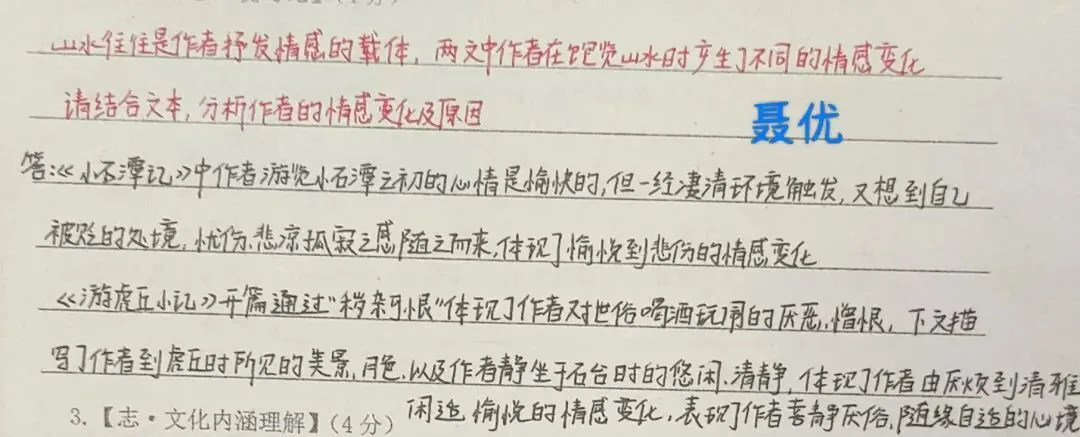 山水往往是作者抒发情感的载体，两文中作者在饱览山水时产生了不同的情感变化
请结合文本，分析作者的情感变化及原因
聂优
答：《小石潭记》中作者游览小石潭之初的心情是愉快的，但一经凄清环境触发，又想到自己
被贬的处境，忧伤、悲凉孤寂之感随之而来，体现了愉悦到悲伤的情感变化
《游虎丘小记》开篇通过“秽杂可恨”体现了作者对世俗喝酒玩闹的厌恶、憎恨，下文描
写了作者到虎丘时所见的美景，月色，以及作者静坐于石台时的悠闲、清静，体现了作者由厌烦到清雅
闲适、愉悦的情感变化，表现了作者喜静厌俗，随缘自适的心境
3.【志·文化内涵理解】（4分）